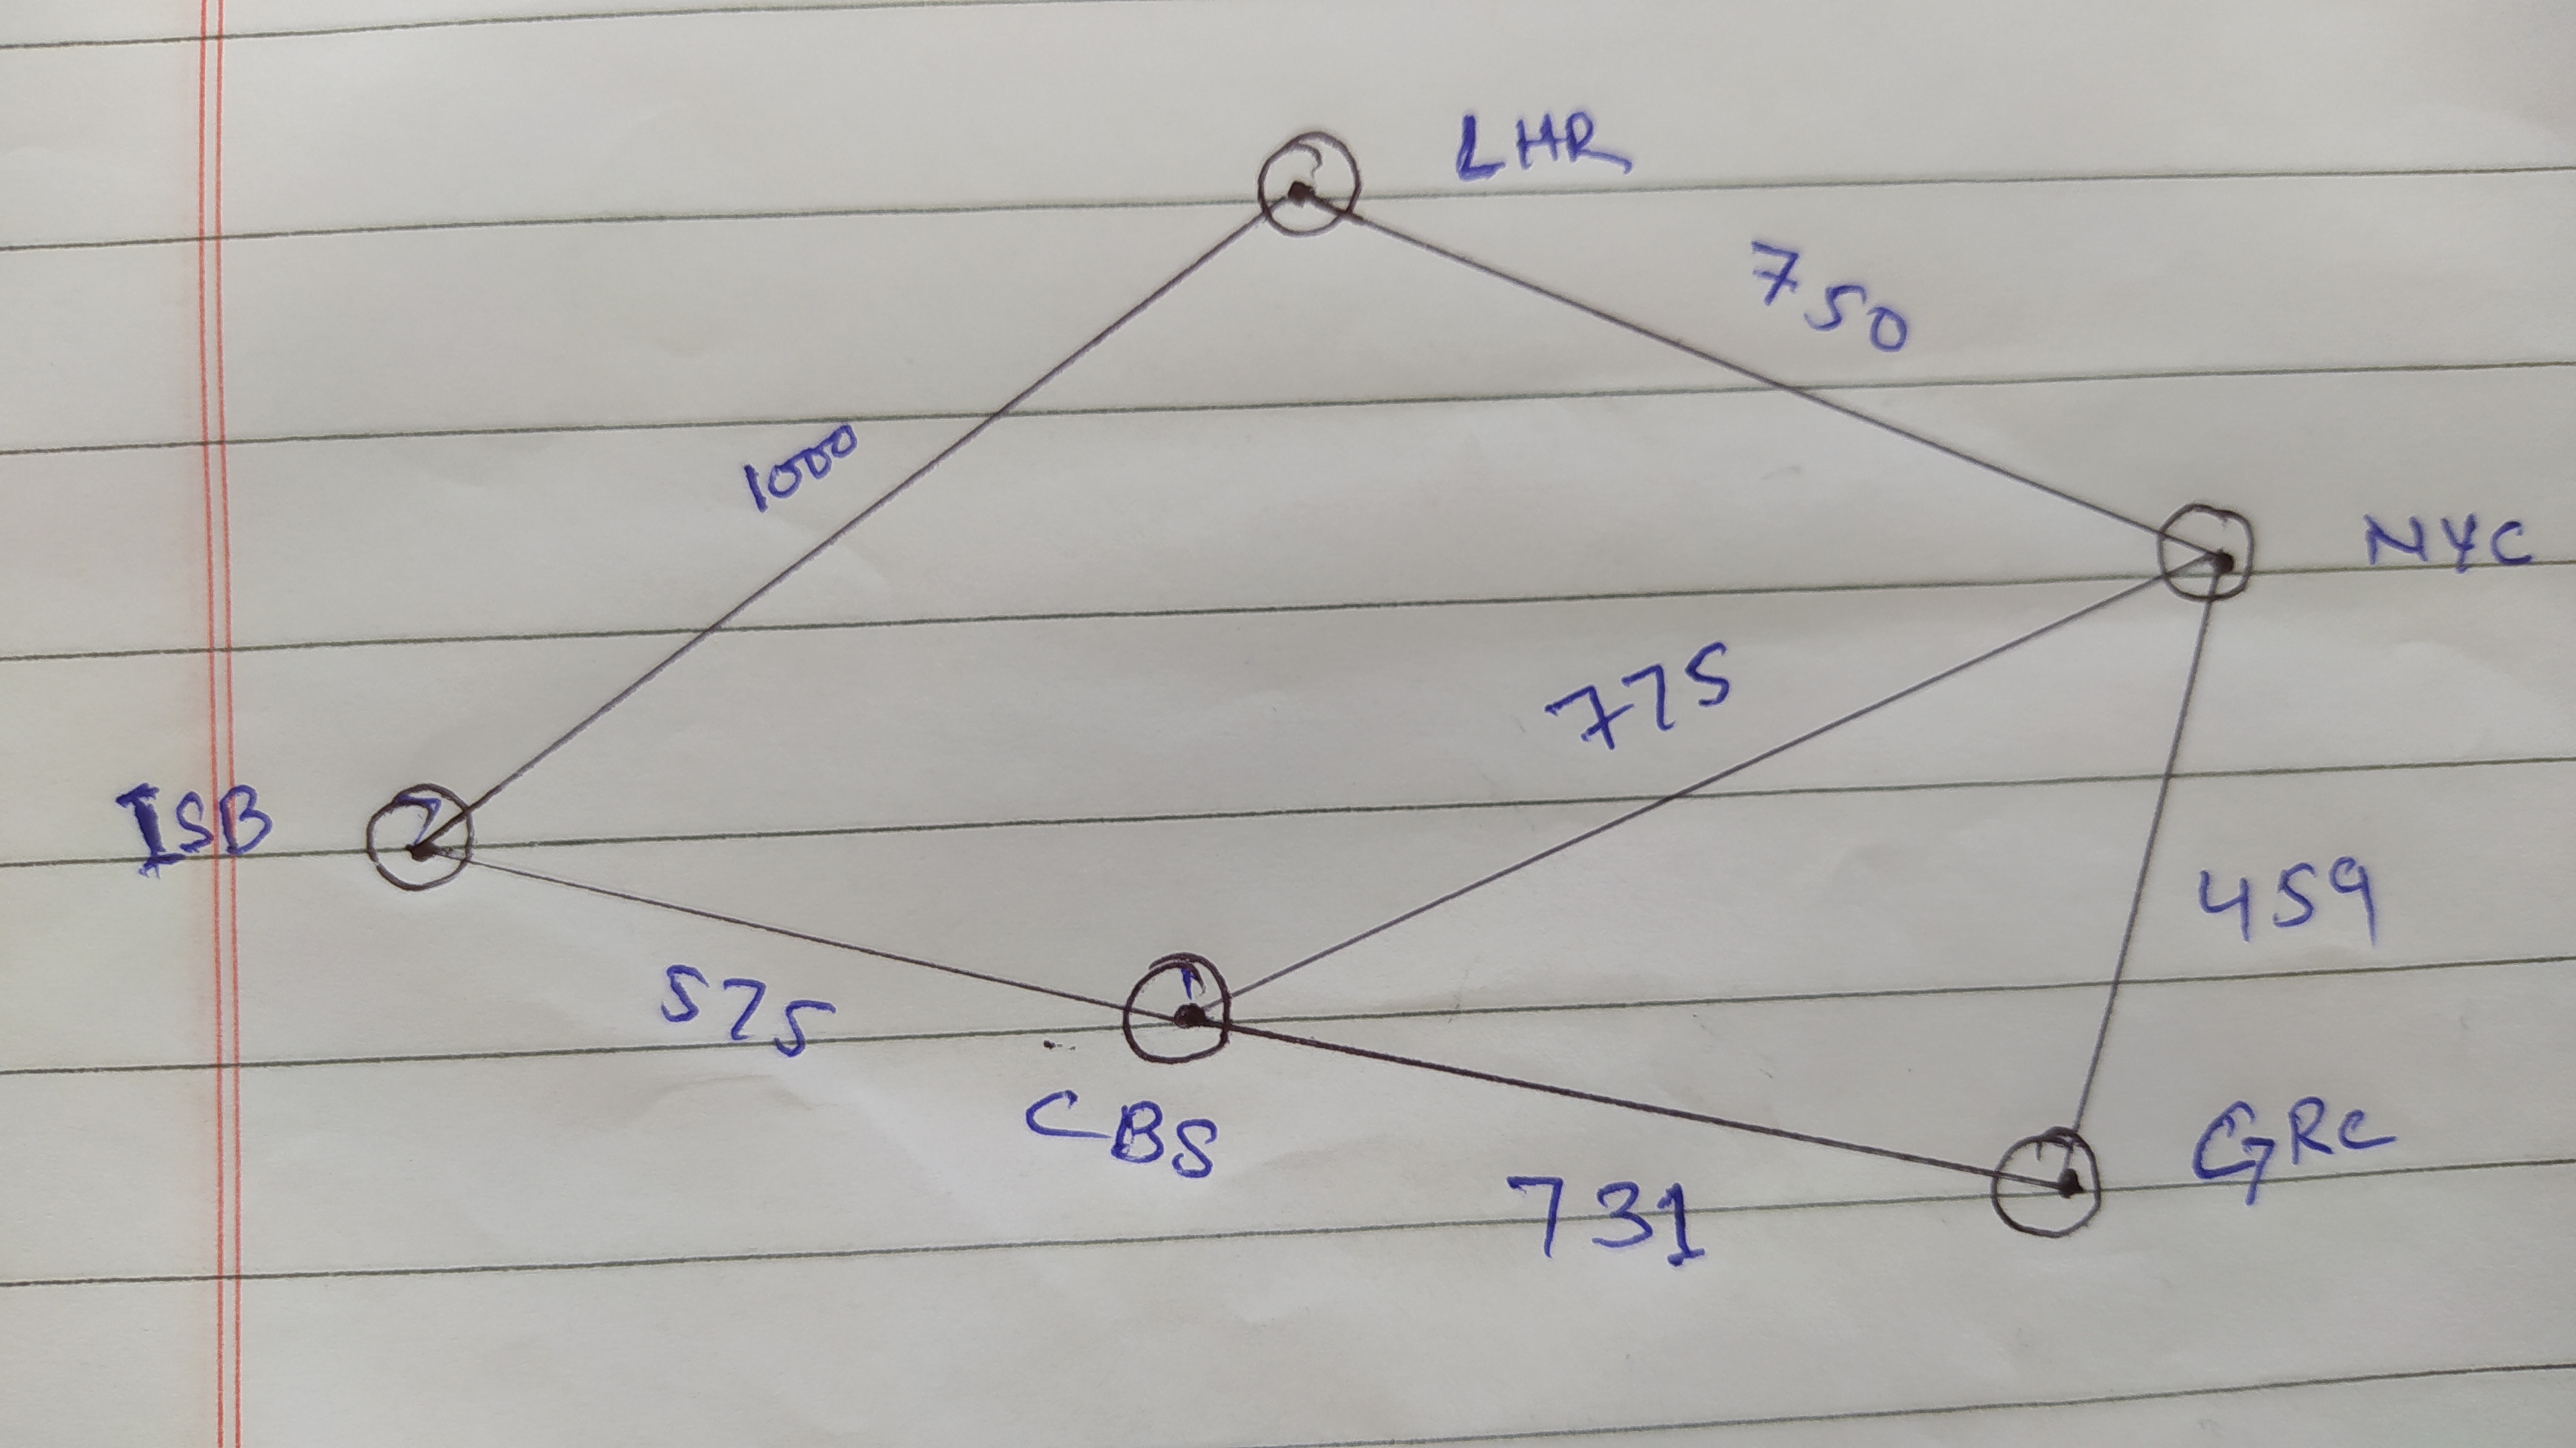 LHR
750
NYC
1000
775
ISB
459
575
CBS
GRC
731